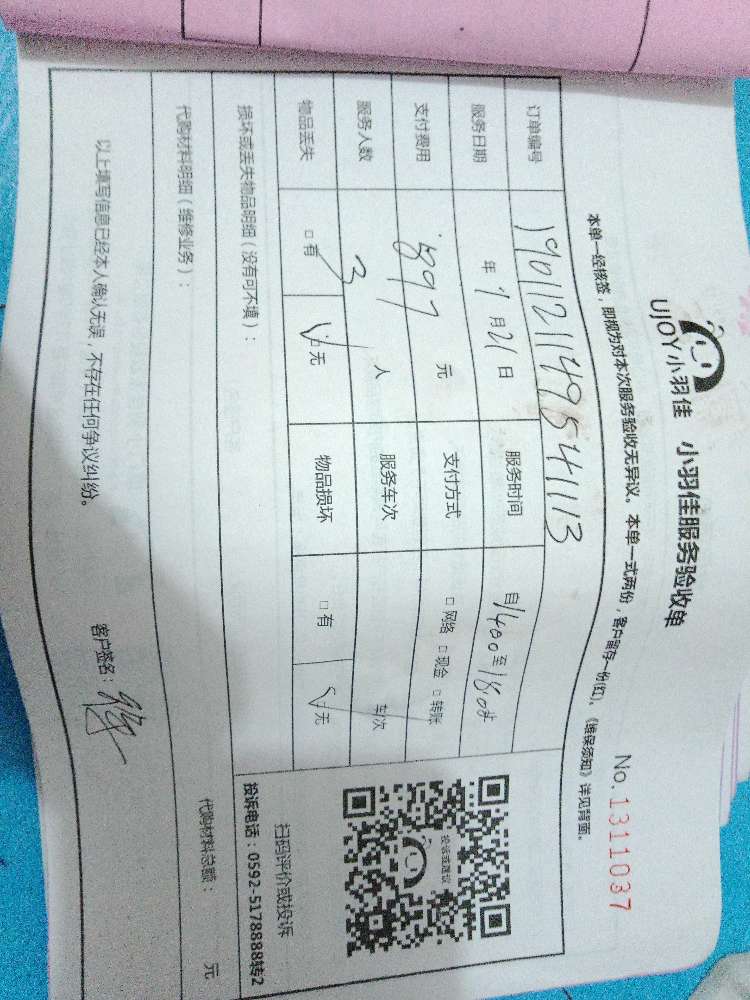 UJOY小羽佳 小羽佳服务验收单
No.1311037
本单一经核签，即视为对本次服务验收无异议。本单一式两份，客户留存一份(红)，《维保须知》详见背面。
订单编号 1901121149541113
服务日期 年 1 月 21 日 服务时间 自 1400 至 18:00
支付费用 897 元 支付方式 □ 网络 □ 现金 □ 转账
服务人数 3 人 服务车次 车次
物品丢失 □ 有 ☑ 无 物品损坏 □ 有 ☑ 无
损坏或丢失物品明细（没有可不填）：
代购材料明细（维修业务）：
代购材料总额： 元
扫码评价或投诉
投诉电话：0592-5178888转2
以上填写信息已经本人确认无误，不存在任何争议纠纷。
客户签名：